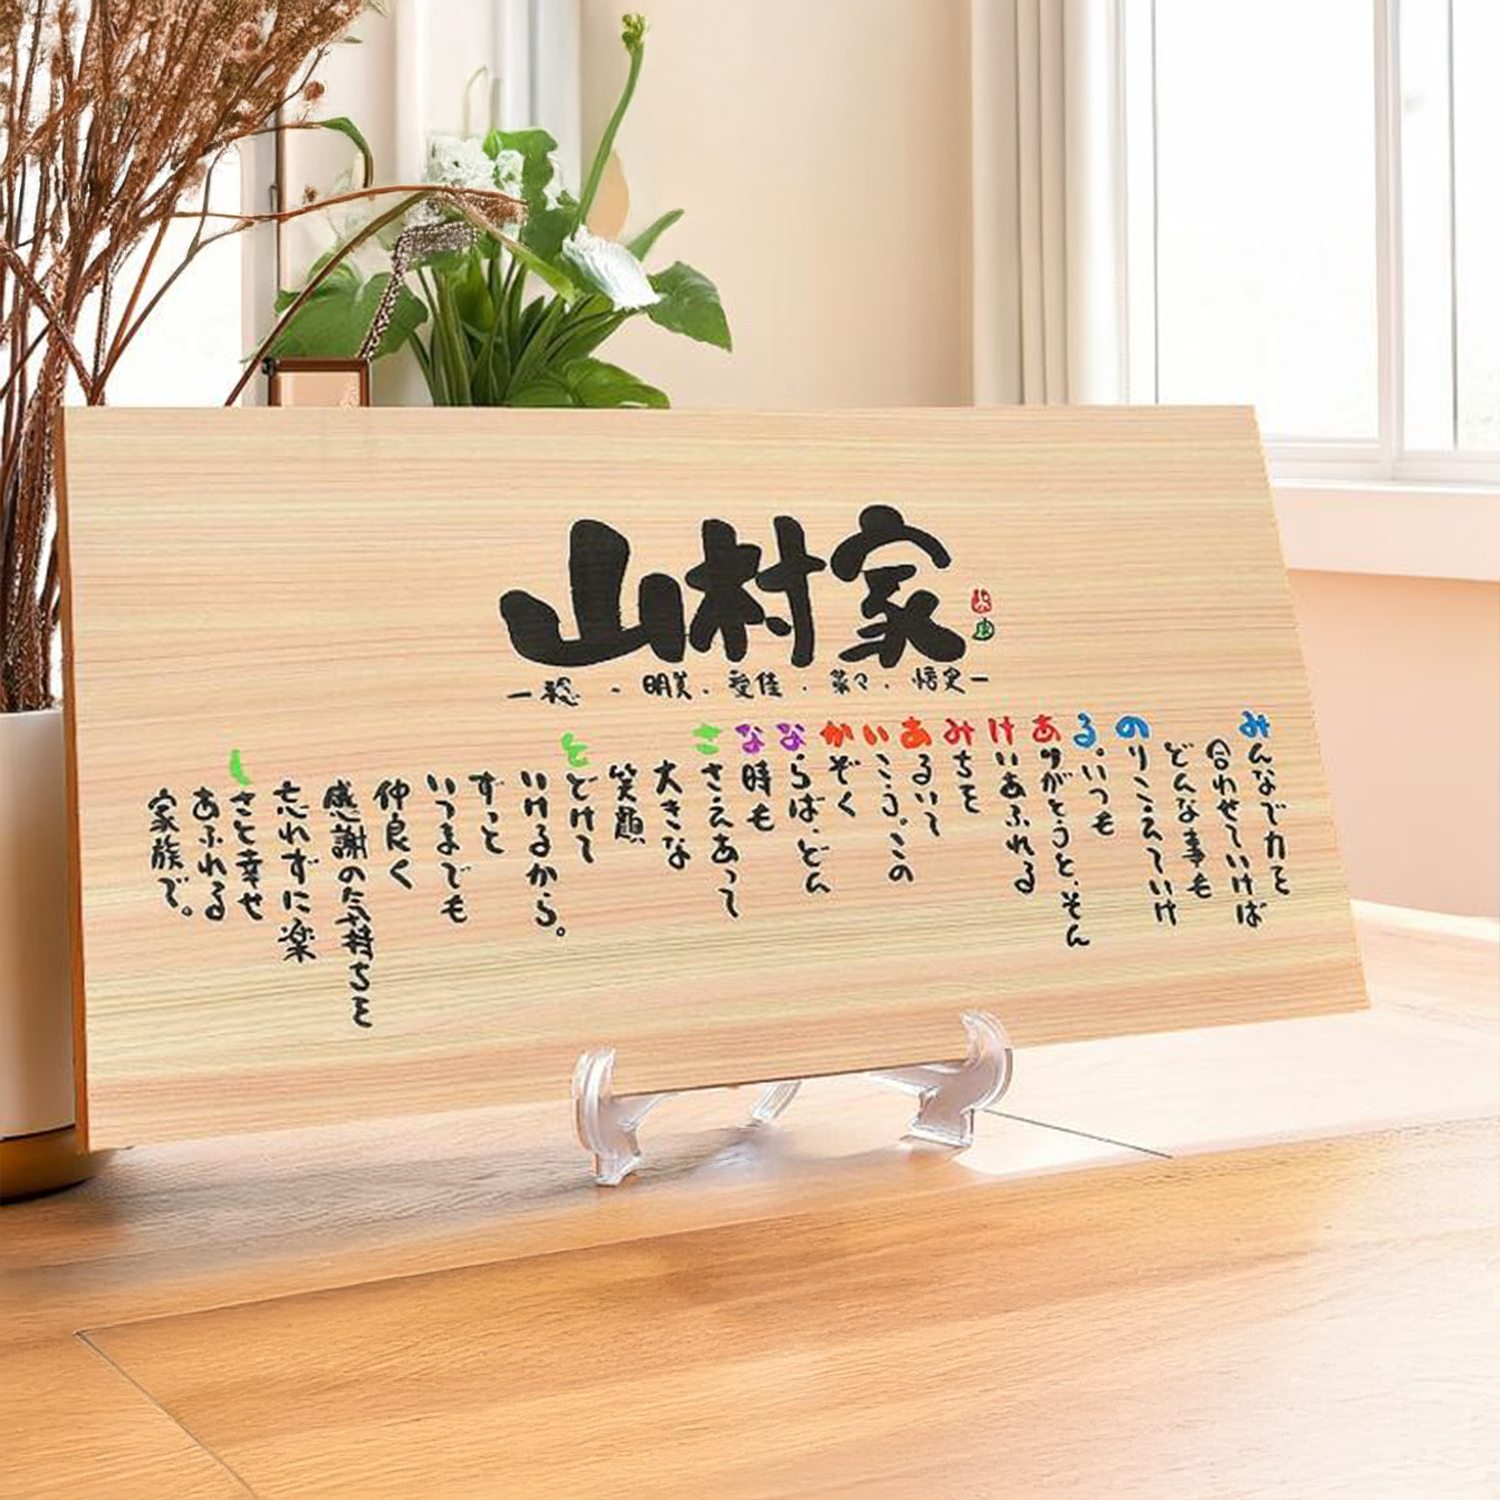 山村家
ー聡・明美・愛佳・菜々・悟史ー
みんなで力を
合わせていけば
どんな事も
のりこえていけ
る。いつも
ありがとうと、そん
けいあふれる
みちを
あるいて
いこう。この
かぞく
ならば、どん
な時も
ささえあって
大きな
笑顔
とどけて
いけるから。
ずっと
いつまでも
仲良く
感謝の気持ちを
忘れずに楽
しさと幸せ
あふれる
家族で。